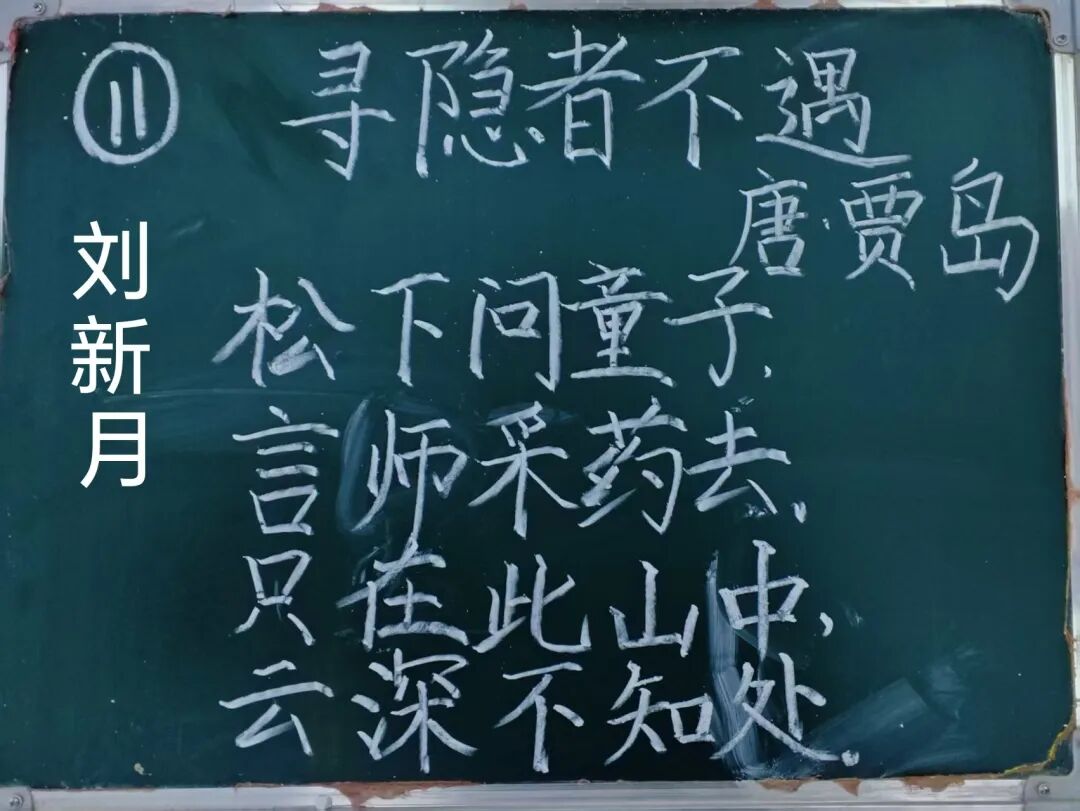 ⑪ 寻隐者不遇
唐·贾岛
刘新月
松下问童子,
言师采药去,
只在此山中,
云深不知处.